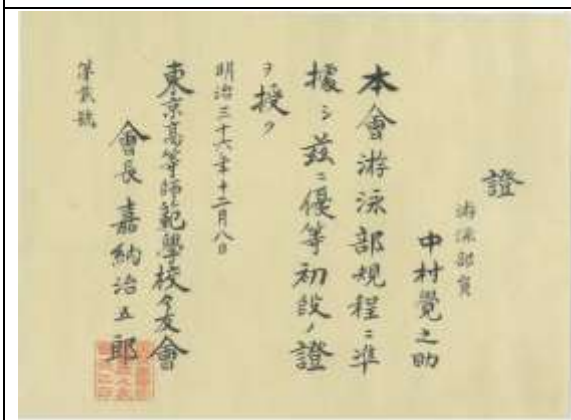 證
游泳部員
中村覺之助
本會游泳部規程ニ準
據シ茲ニ優等初段ノ證
ヲ授ク
明治三十六年十二月八日
東京高等師範學校々友會
會長 嘉納治五郎
第貳號